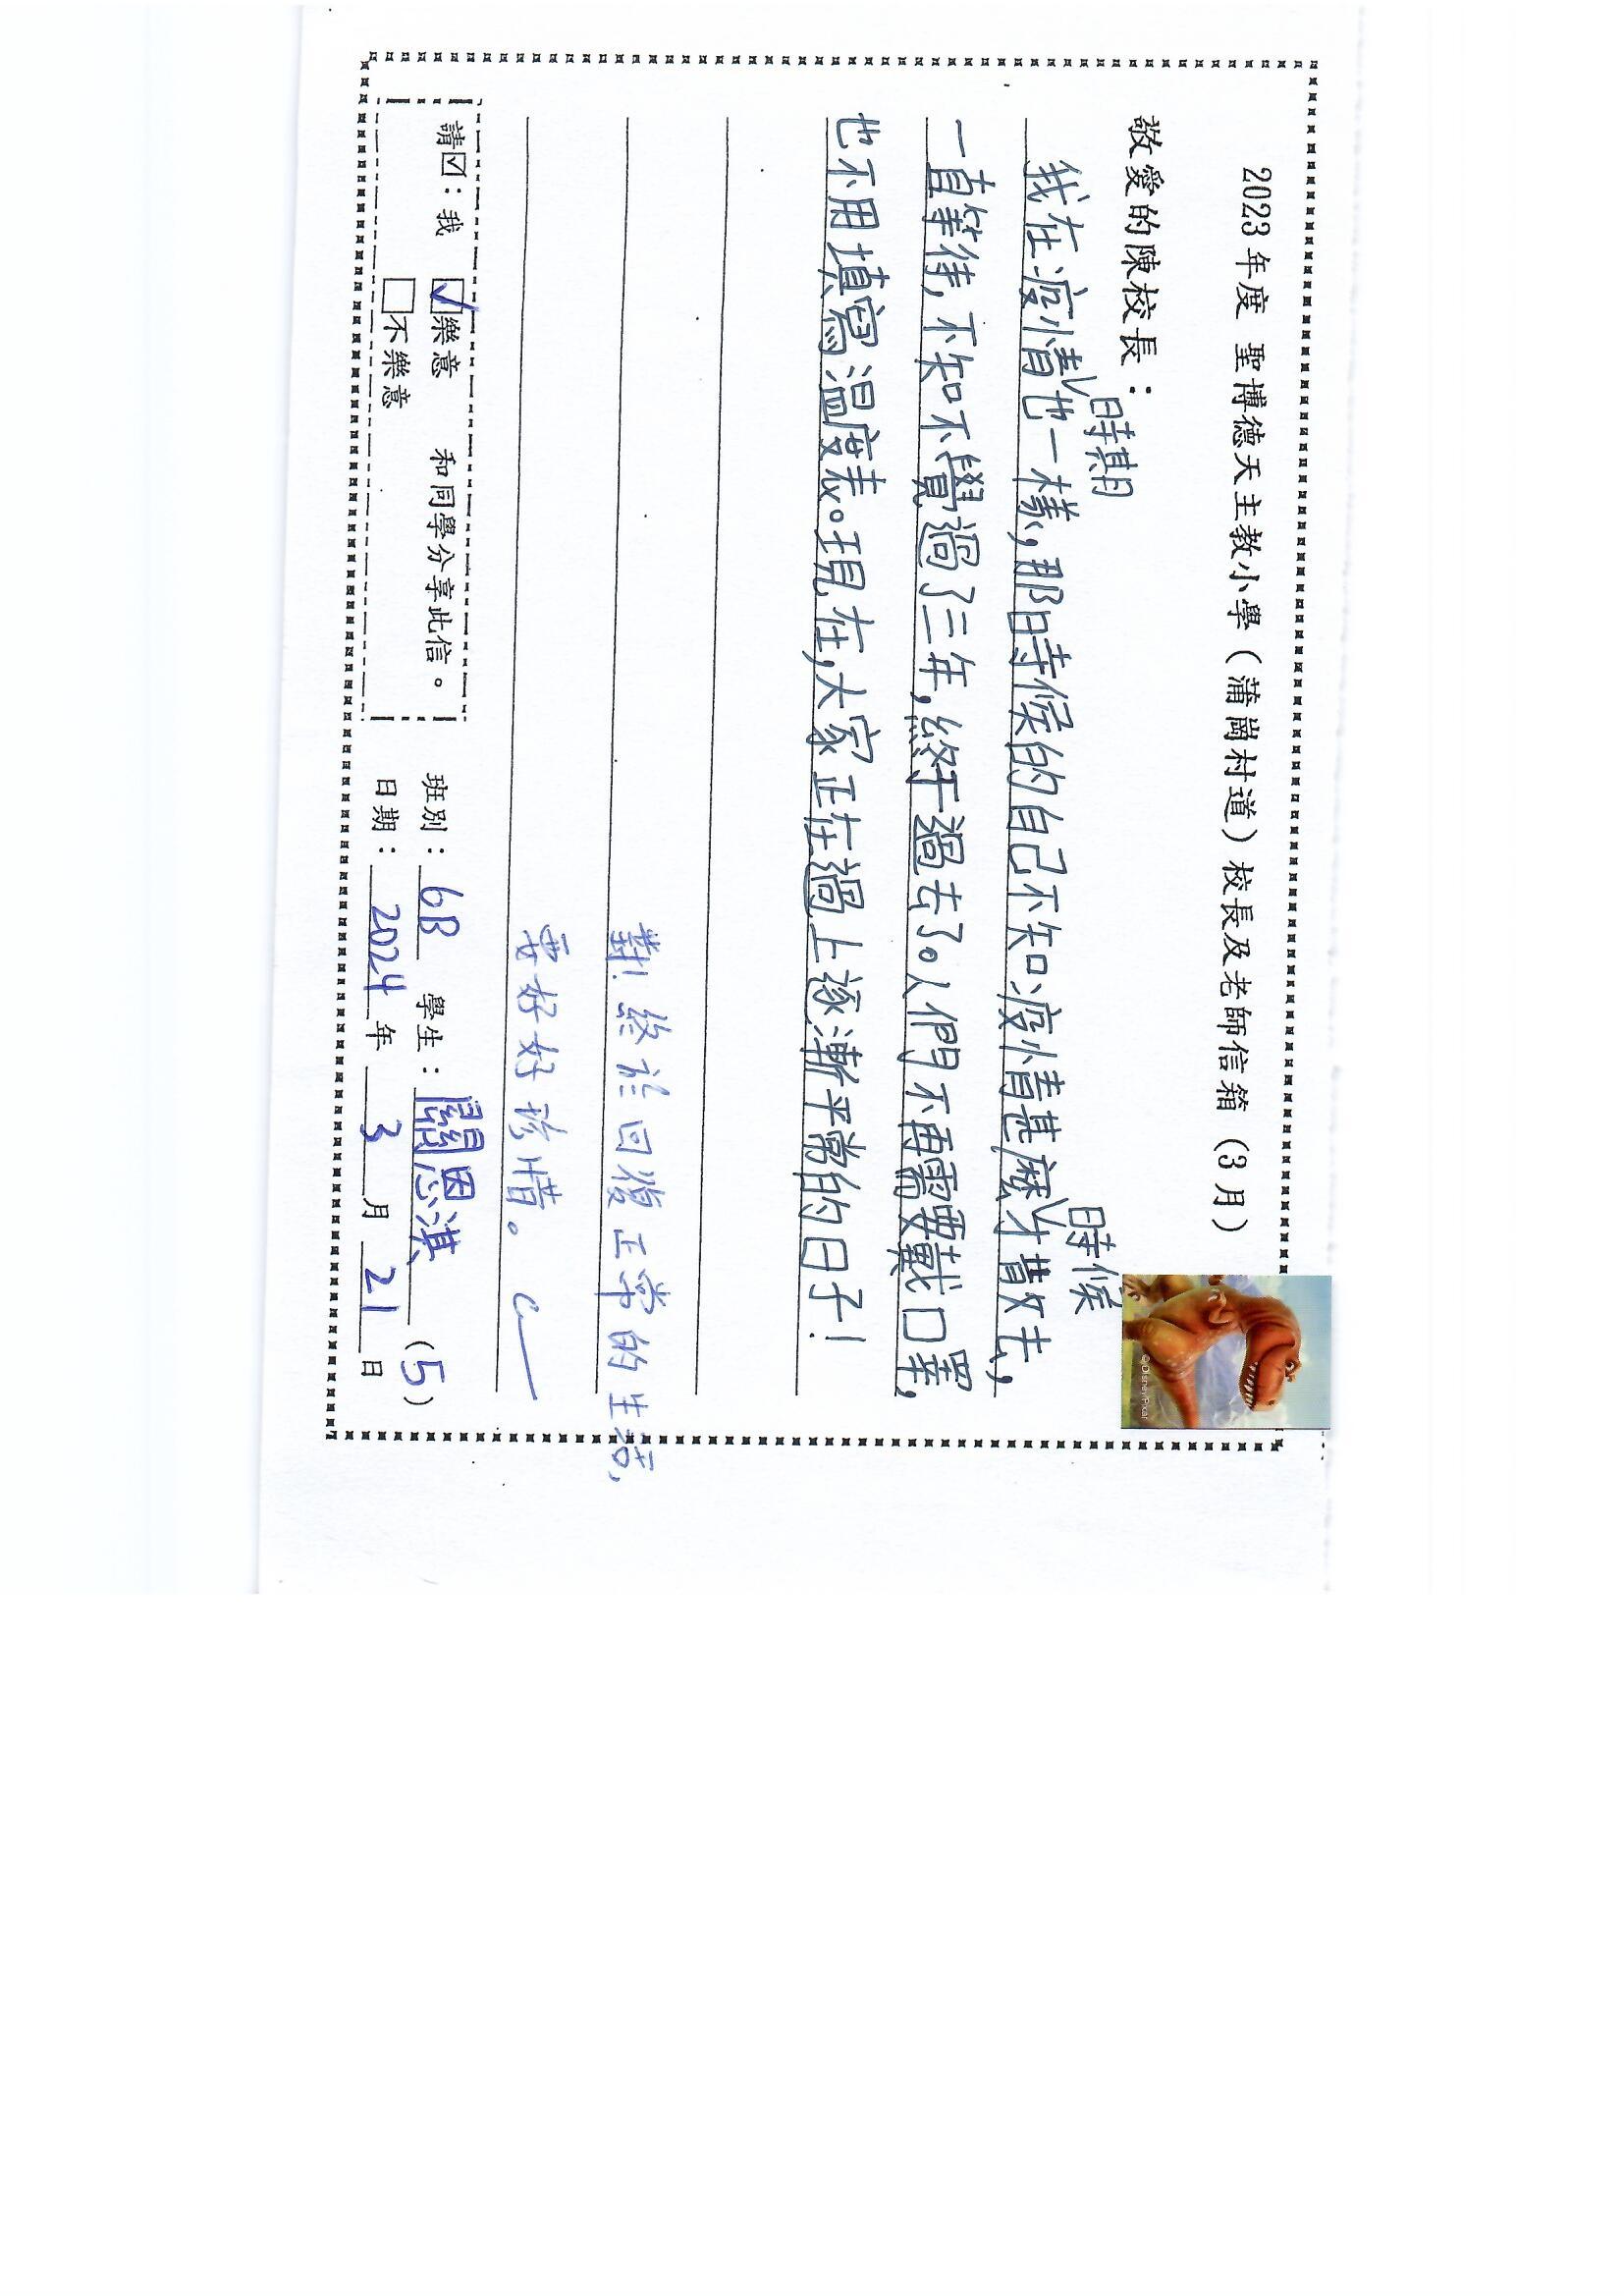 2023年度 聖博德天主教小學（蒲崗村道）校長及老師信箱（3月）
敬愛的陳校長：
時期 時候
我在疫情也一樣，那時候的自己不知疫情甚麼才費故去，
一直等待，不知不覺過了三年，終于過去了。人們不再需要戴口罩，
也不用填寫溫度表。現在，大家正在過上逐漸平常的日子！
對！終於回復正常的生活，
要好好珍惜。
請☑：我 ☑樂意 和同學分享此信。
□不樂意
班別：6B 學生：關恩淇 (5)
日期：2024年3月21日
©Disney/Pixar